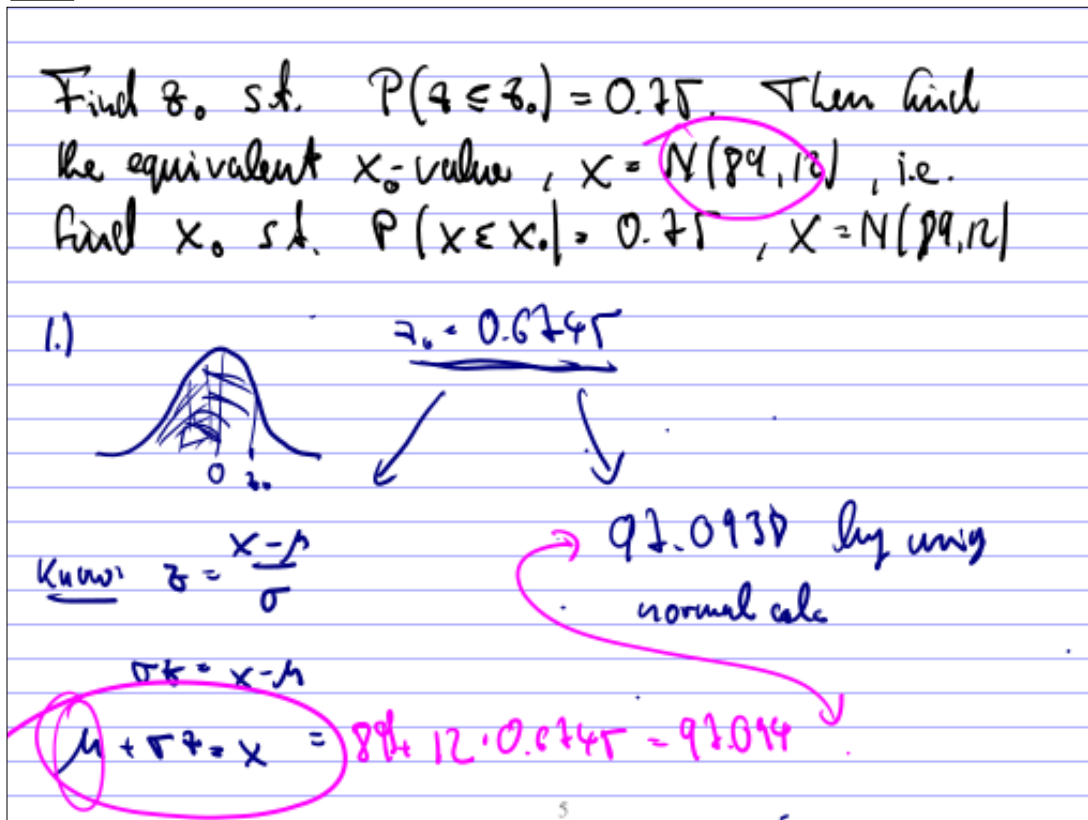 Find z₀ st. P(z ≤ z₀) = 0.75. Then find
the equivalent x₀-value, x = N(89,12), i.e.
find x₀ st. P(x ≤ x₀) = 0.75, x = N(89,12)
1.) z₀ = 0.6745
0 z₀
97.0938 by using
Know: z = (x-μ)/σ
normal calc
σz = x-μ
μ + σz = x = 89 + 12 · 0.6745 = 97.094
5